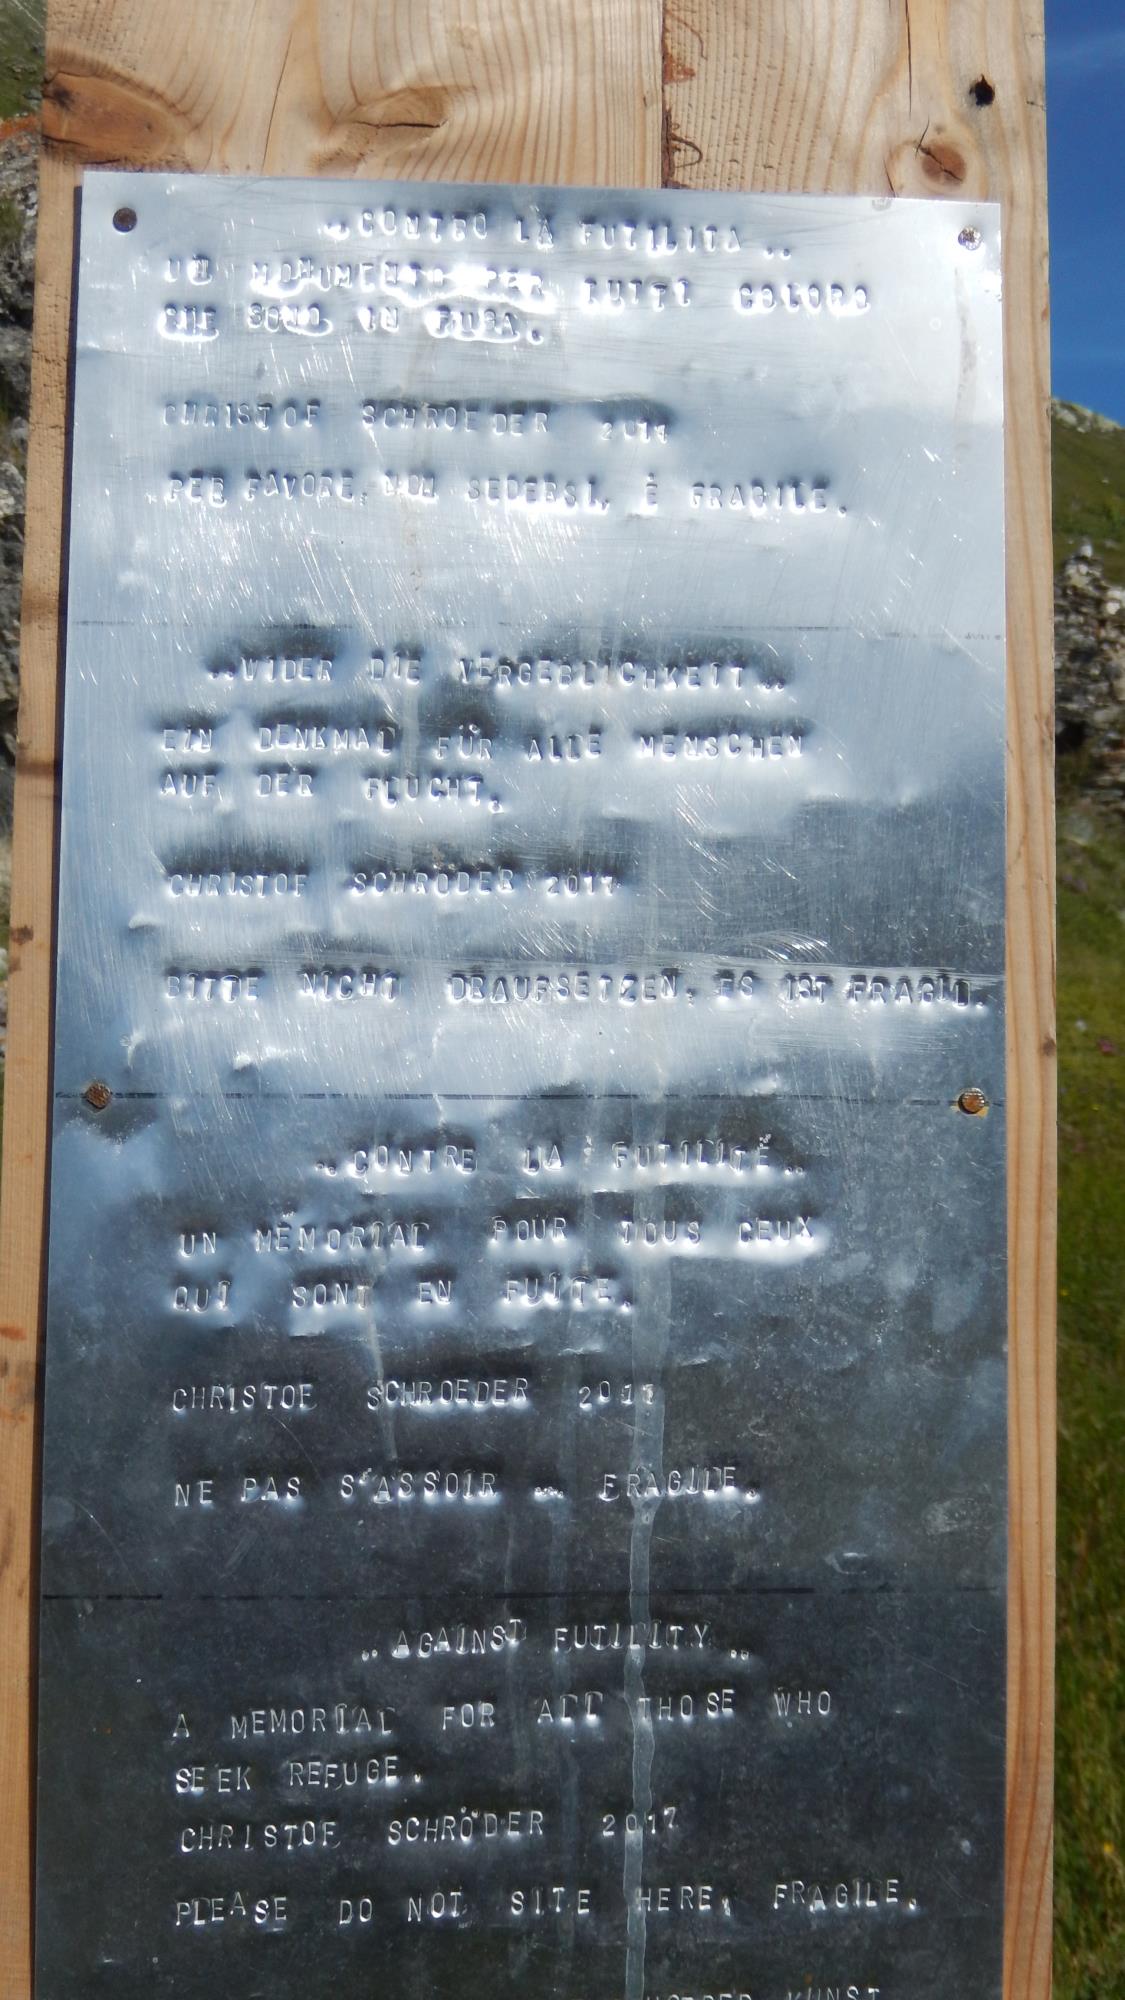 „CONTRO LA FUTILITA„
UN MONUMENTO PER TUTTI COLORO
CHE SONO IN FUGA.
CHRISTOF SCHROEDER 2017
PER FAVORE, NON SEDERSI, È FRAGILE.
„WIDER DIE VERGEBLICHKEIT„
EIN DENKMAL FÜR ALLE MENSCHEN
AUF DER FLUCHT.
CHRISTOF SCHRÖDER 2017
BITTE NICHT DRAUFSETZEN, ES IST FRAGIL.
„CONTRE LA FUTILITÉ„
UN MÉMORIAL POUR TOUS CEUX
QUI SONT EN FUITE.
CHRISTOF SCHROEDER 2017
NE PAS S'ASSOIR ... FRAGILE.
„AGAINST FUTILITY„
A MEMORIAL FOR ALL THOSE WHO
SEEK REFUGE.
CHRISTOF SCHRÖDER 2017
PLEASE DO NOT SITE HERE, FRAGILE.
KUNST